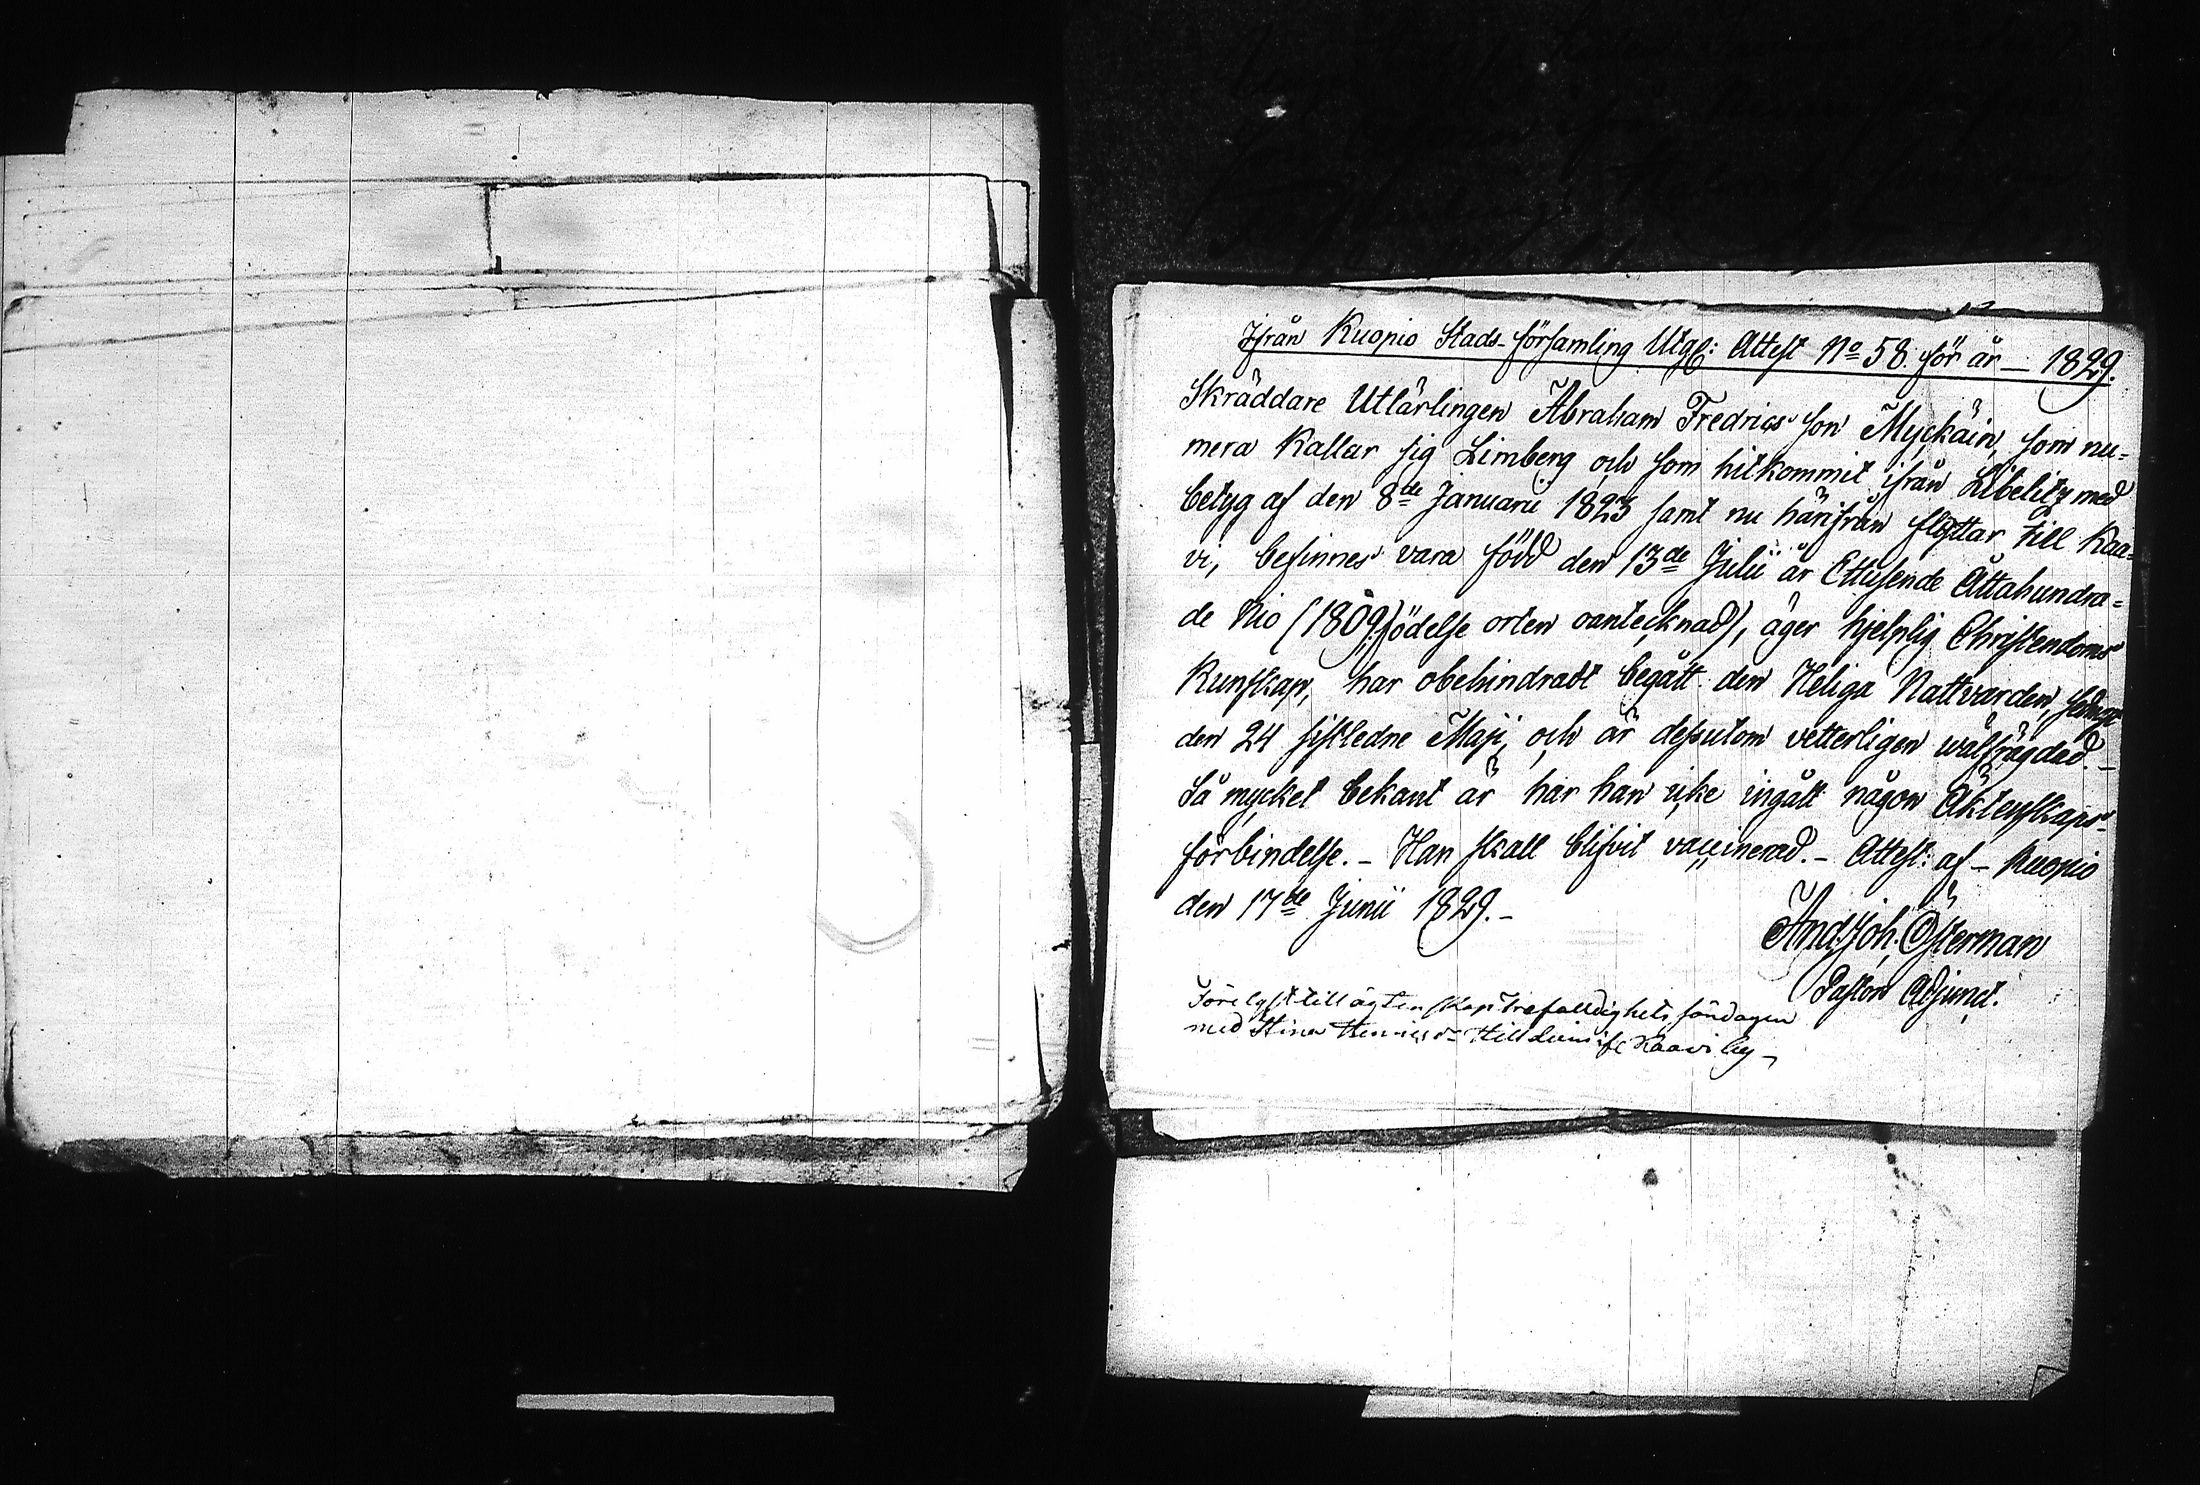 Ifrån Kuopio Stads-församling Utgif: Attest No 58. för år — 1829.
Skräddare Utlärlingen Abraham Fredrics son Myckäin, som nu-
mera kallar sig Limberg och som hitkommit ifrån Libelitz med
betyg af den 8de Januarii 1823 samt nu härifrån flyttar till Kaa-
vi, befinnes vara född den 13de Julii år Ettusende Åttahundra-
de Nio (1809) födelse orten oantecknad), äger hjelplig Christendoms
Kunskap, har obehindradt begått den Heliga Nattvarden, sednast
den 24 sistledne Maji, och är dessutom vetterligen wälfrägdad. –
Så mycket bekant är har han icke ingått någon Äktenskaps-
förbindelse. – Han skall blifvit vaccinerad. – Attest: af – Kuopio
den 17de Junii 1829. –
And. Joh. Österman
Pastors Adjunct.
Förelyst till ägtenskap Trefalldighets söndagen
med Stina Kaavi by –